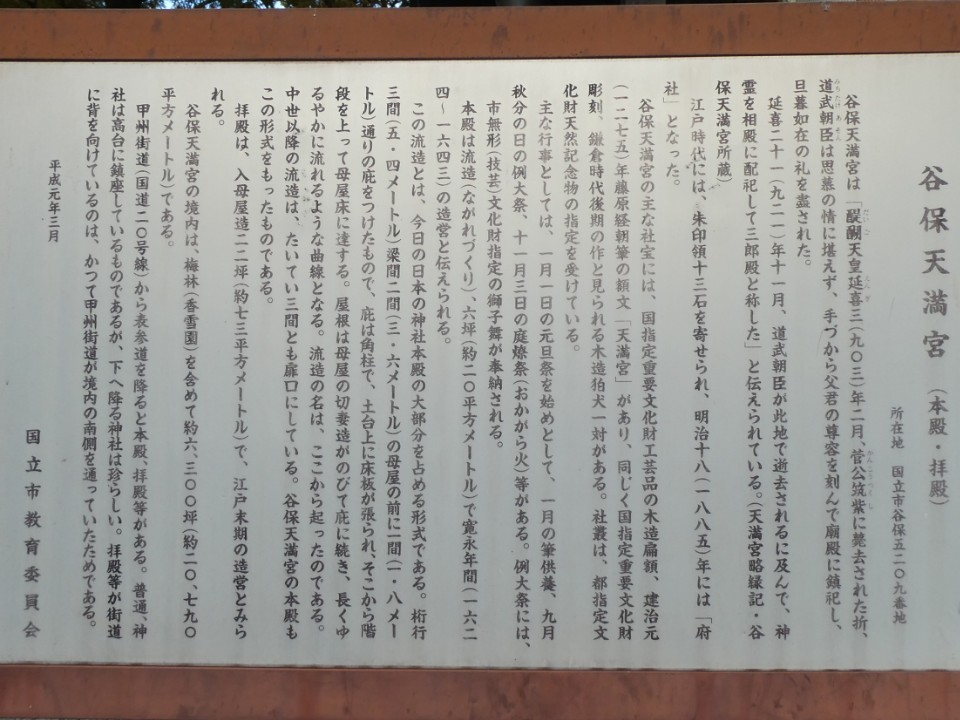 谷保天満宮 (本殿・拝殿)
所在地 国立市谷保五二〇九番地
谷保天満宮は「醍醐天皇延喜三(九〇三)年二月、菅公筑紫に薨去された折、
道武朝臣は思慕の情に堪えず、手づから父君の尊容を刻んで廟殿に鎮祀し、
旦暮如在の礼を盡された。
延喜二十一(九二一)年十一月、道武朝臣が此地で逝去されるに及んで、神
霊を相殿に配祀して三郎殿と称した」と伝えられている。(天満宮略縁記・谷
保天満宮所蔵)
江戸時代には、朱印領十三石を寄せられ、明治十八(一八八五)年には「府
社」となった。
谷保天満宮の主な社宝には、国指定重要文化財工芸品の木造扁額、建治元
(一二七五)年藤原経朝筆の額文「天満宮」があり、同じく国指定重要文化財
彫刻、鎌倉時代後期の作と見られる木造狛犬一対がある。社叢は、都指定文
化財天然記念物の指定を受けている。
主な行事としては、一月一日の元旦祭を始めとして、一月の筆供養、九月
秋分の日の例大祭、十一月三日の庭燎祭(おかがら火)等がある。例大祭には、
市無形(技芸)文化財指定の獅子舞が奉納される。
本殿は流造(ながれづくり)、六坪(約二〇平方メートル)で寛永年間(一六二
四〜一六四三)の造営と伝えられる。
この流造とは、今日の日本の神社本殿の大部分を占める形式である。桁行
三間(五・四メートル)梁間二間(三・六メートル)の母屋の前に一間(一・八メー
トル)通りの庇をつけたもので、庇は角柱で、土台上に床板が張られ、そこから階
段を上って母屋床に達する。屋根は母屋の切妻造がのびて庇に続き、長くゆ
るやかに流れるような曲線となる。流造の名は、ここから起ったのである。
中世以降の流造は、たいてい三間とも扉口にしている。谷保天満宮の本殿も
この形式をもったものである。
拝殿は、入母屋造二二坪(約七三平方メートル)で、江戸末期の造営とみら
れる。
谷保天満宮の境内は、梅林(香雪園)を含めて約六、三〇〇坪(約二〇、七九〇
平方メートル)である。
甲州街道(国道二〇号線)から表参道を降ると本殿、拝殿等がある。普通、神
社は高台に鎮座しているものであるが、下へ降る神社は珍らしい。拝殿等が街道
に背を向けているのは、かつて甲州街道が境内の南側を通っていたためである。
平成元年三月
国立市教育委員会